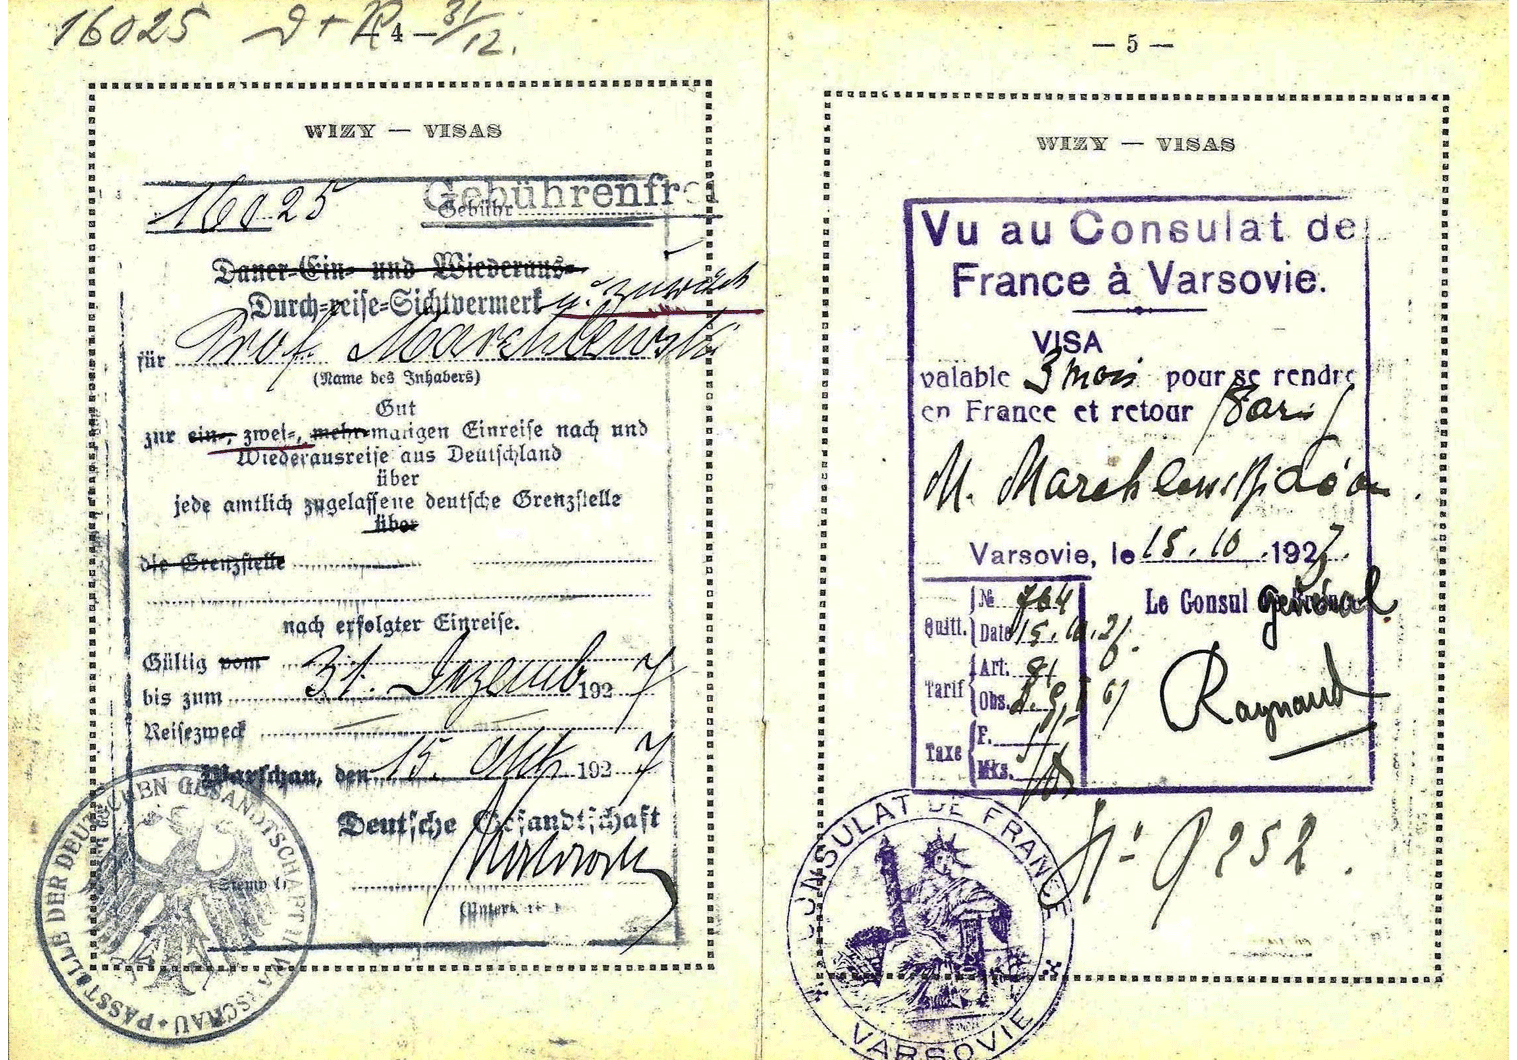 16025 D + R 31/12.
— 4 —
WIZY — VISAS
16025 Gebührenfrei
Gebühr
Dauer-Ein- und Wiederaus-
Durch-reise-Sichtvermerk u. zurück
für Prof. Marchlewski
(Name des Inhabers)
Gut
zur ein-, zwei-, mehr-maligen Einreise nach und
Wiederausreise aus Deutschland
über
jede amtlich zugelassene deutsche Grenzstelle
über
die Grenzstelle
nach erfolgter Einreise.
Gültig vom
bis zum 31. Dezemb 1927
Reisezweck
Warschau, den 15. Okt 1927
Deutsche Gesandtschaft
(Stempel)
PASSTELLE DER DEUTSCHEN GESANDTSCHAFT IN WARSCHAU
— 5 —
WIZY — VISAS
Vu au Consulat de
France à Varsovie.
VISA
valable 3 mois pour se rendre
en France et retour
M. Marchlewski Léon
Varsovie, le 15.10.1927.
Le Consul général
Quitt. { № 764
Date 15.10.27.
Tarif { Art. 81
Obs.
Taxe { F.
Mks.
Raynaud
CONSULAT DE FRANCE
VARSOVIE
9252.